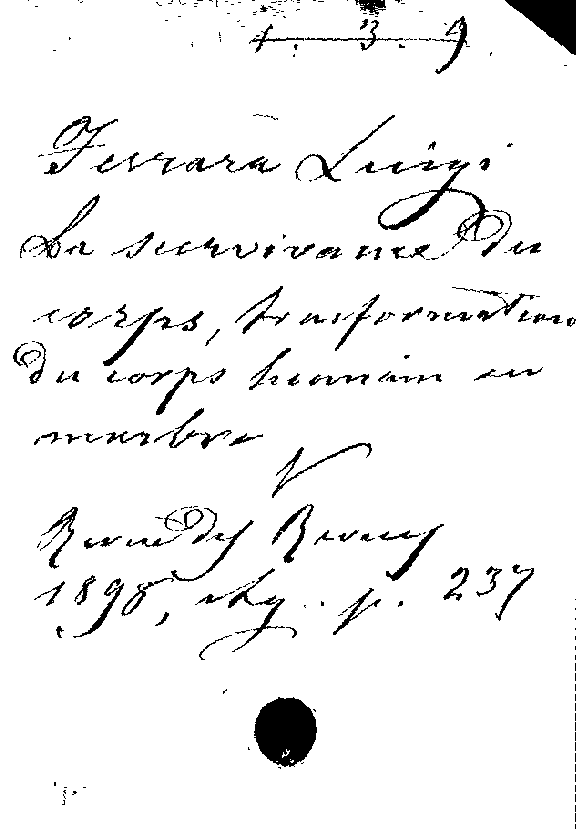 1. 3. 9
Ferrara Luigi
La survivance du
corps, trasformation
du corps humain en
marbre
Revue des Revues
1898, p. 237